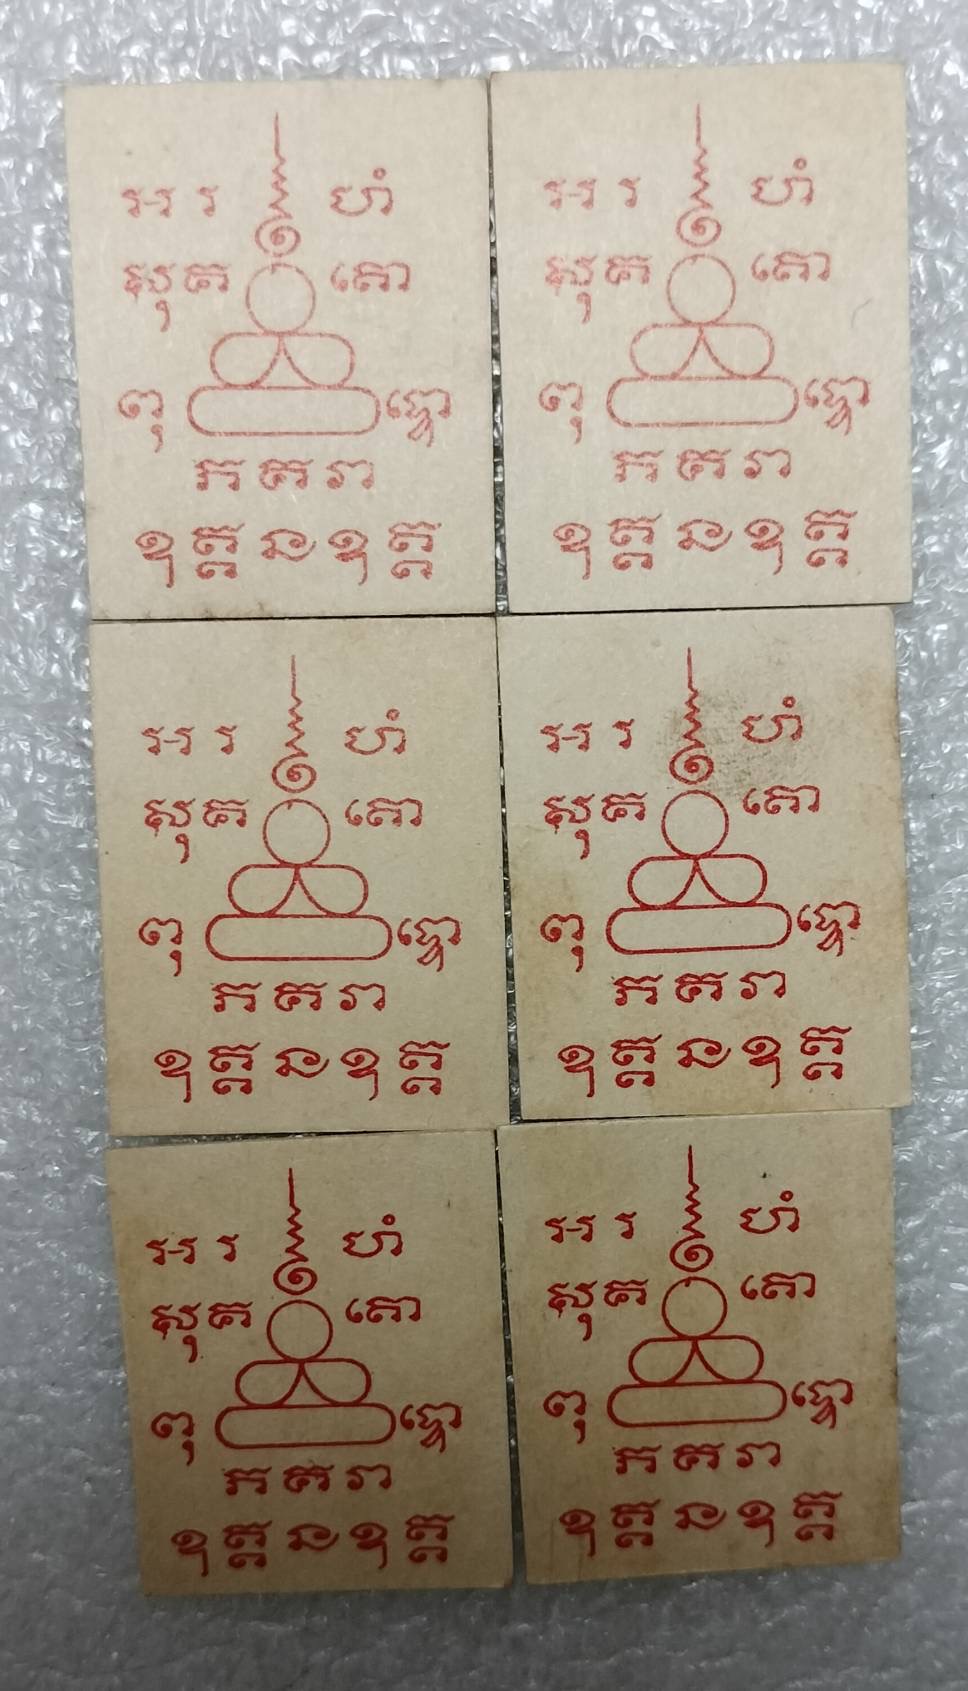 អ រ ហំ
សុគ តោ
ពុ ទ្ធោ
ភ គ វា
ឧ ត្ត ន ឧ ត្ត
អ រ ហំ
សុគ តោ
ពុ ទ្ធោ
ភ គ វា
ឧ ត្ត ន ឧ ត្ត
អ រ ហំ
សុគ តោ
ពុ ទ្ធោ
ភ គ វា
ឧ ត្ត ន ឧ ត្ត
អ រ ហំ
សុគ តោ
ពុ ទ្ធោ
ភ គ វា
ឧ ត្ត ន ឧ ត្ត
អ រ ហំ
សុគ តោ
ពុ ទ្ធោ
ភ គ វា
ឧ ត្ត ន ឧ ត្ត
អ រ ហំ
សុគ តោ
ពុ ទ្ធោ
ភ គ វា
ឧ ត្ត ន ឧ ត្ត